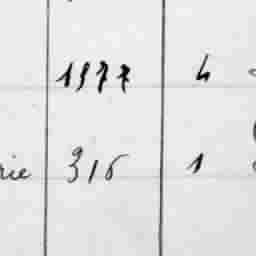 1977 4
rie 316 1